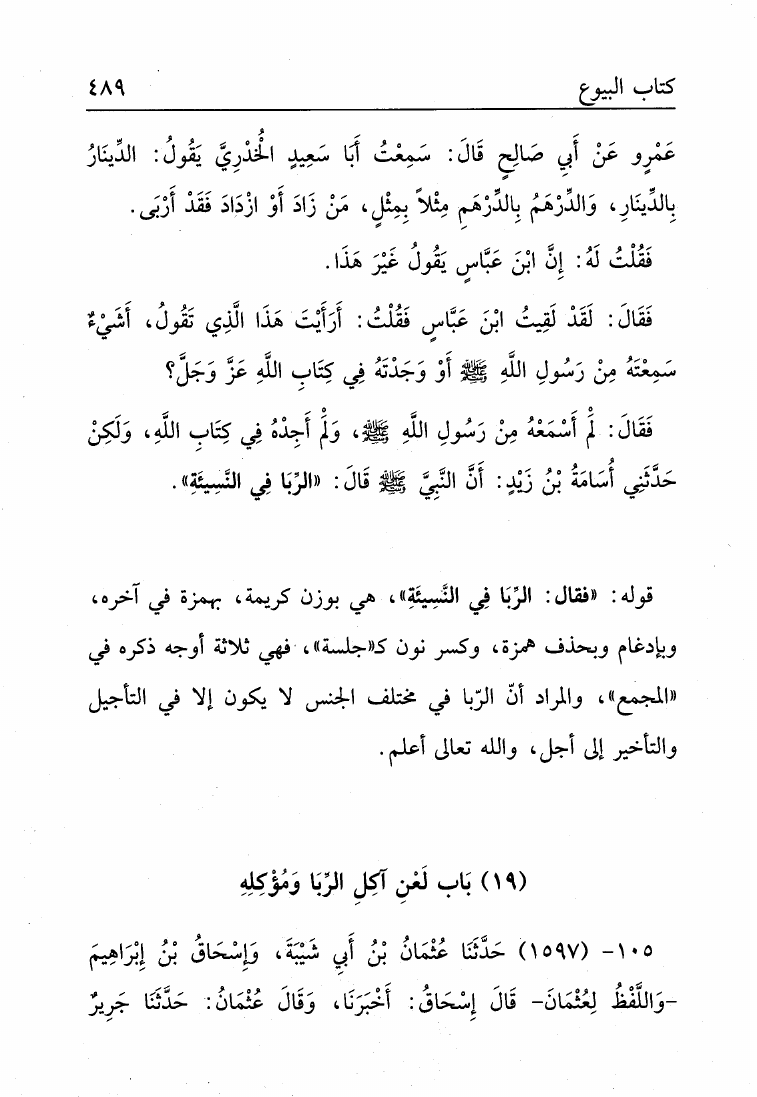 كتاب البيوع ٤٨٩
عَمْرٍو عَنْ أَبِي صَالِحٍ قَالَ: سَمِعْتُ أَبَا سَعِيدٍ الْخُدْرِيَّ يَقُولُ: الدِّينَارُ
بِالدِّينَارِ، وَالدِّرْهَمُ بِالدِّرْهَمِ مِثْلاً بِمِثْلٍ، مَنْ زَادَ أَوْ ازْدَادَ فَقَدْ أَرْبَى.
فَقُلْتُ لَهُ: إِنَّ ابْنَ عَبَّاسٍ يَقُولُ غَيْرَ هَذَا.
فَقَالَ: لَقَدْ لَقِيتُ ابْنَ عَبَّاسٍ فَقُلْتُ: أَرَأَيْتَ هَذَا الَّذِي تَقُولُ، أَشَيْءٌ
سَمِعْتَهُ مِنْ رَسُولِ اللَّهِ ﷺ أَوْ وَجَدْتَهُ فِي كِتَابِ اللَّهِ عَزَّ وَجَلَّ؟
فَقَالَ: لَمْ أَسْمَعْهُ مِنْ رَسُولِ اللَّهِ ﷺ، وَلَمْ أَجِدْهُ فِي كِتَابِ اللَّهِ، وَلَكِنْ
حَدَّثَنِي أُسَامَةُ بْنُ زَيْدٍ: أَنَّ النَّبِيَّ ﷺ قَالَ: «الرِّبَا فِي النَّسِيئَةِ».
قوله: «فقال: الرِّبَا فِي النَّسِيئَةِ»، هي بوزن كريمة، بهمزة في آخره،
وبإدغام وبحذف همزة، وكسر نون كـ«جلسة»، فهي ثلاثة أوجه ذكره في
«المجمع»، والمراد أنّ الرّبا في مختلف الجنس لا يكون إلا في التأجيل
والتأخير إلى أجل، والله تعالى أعلم.
(١٩) بَاب لَعْنِ آكِلِ الرِّبَا وَمُؤْكِلِهِ
١٠٥- (١٥٩٧) حَدَّثَنَا عُثْمَانُ بْنُ أَبِي شَيْبَةَ، وَإِسْحَاقُ بْنُ إِبْرَاهِيمَ
-وَاللَّفْظُ لِعُثْمَانَ- قَالَ إِسْحَاقُ: أَخْبَرَنَا، وَقَالَ عُثْمَانُ: حَدَّثَنَا جَرِيرٌ